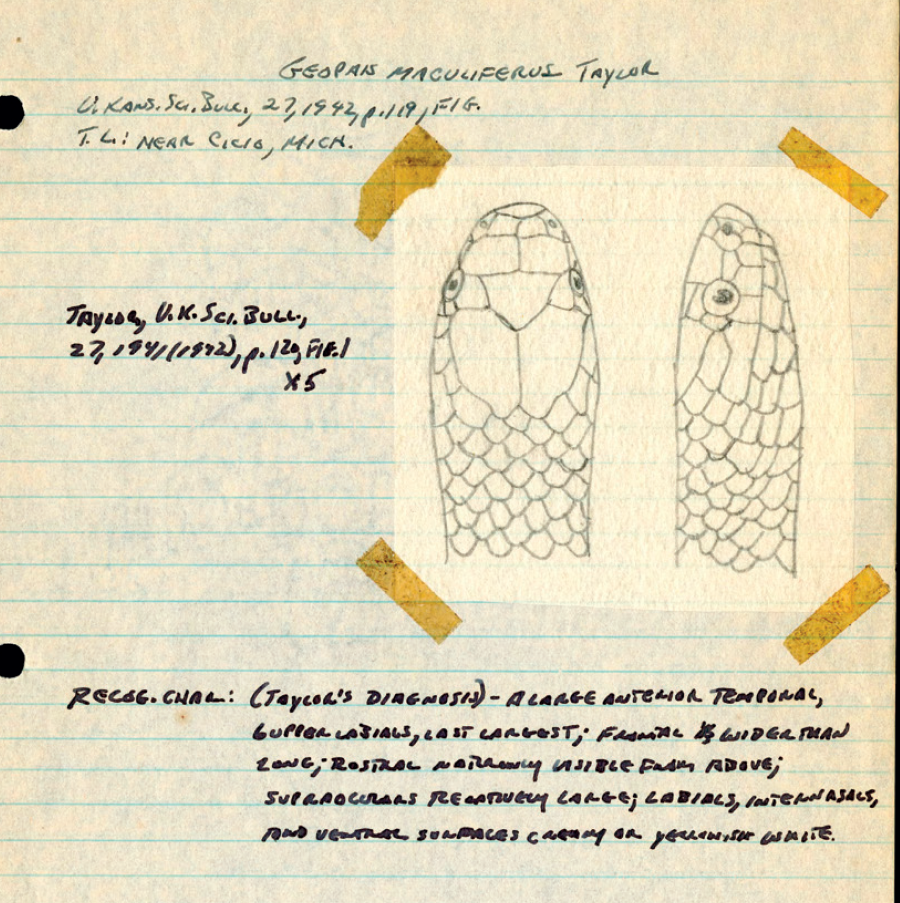 GEOPAIS MACULIFERUS TAYLOR
U. KANS. SCI. BULL., 27, 1942, p. 119, FIG.
T. L.: NEAR CICIO, MICH.
TAYLOR, U.K. SCI. BULL.,
27, 1941 (1942), p. 120, FIG. 1
X5
RECOG. CHAR.: (TAYLOR'S DIAGNOSIS) - A LARGE ANTERIOR TEMPORAL,
6 UPPER LABIALS, LAST LARGEST; FRONTAL WIDER THAN
LONG; ROSTRAL NARROWLY VISIBLE FROM ABOVE;
SUPRAOCULARS RELATIVELY LARGE; LABIALS, INTERNASALS,
AND VENTRAL SURFACES CREAMY OR YELLOWISH WHITE.